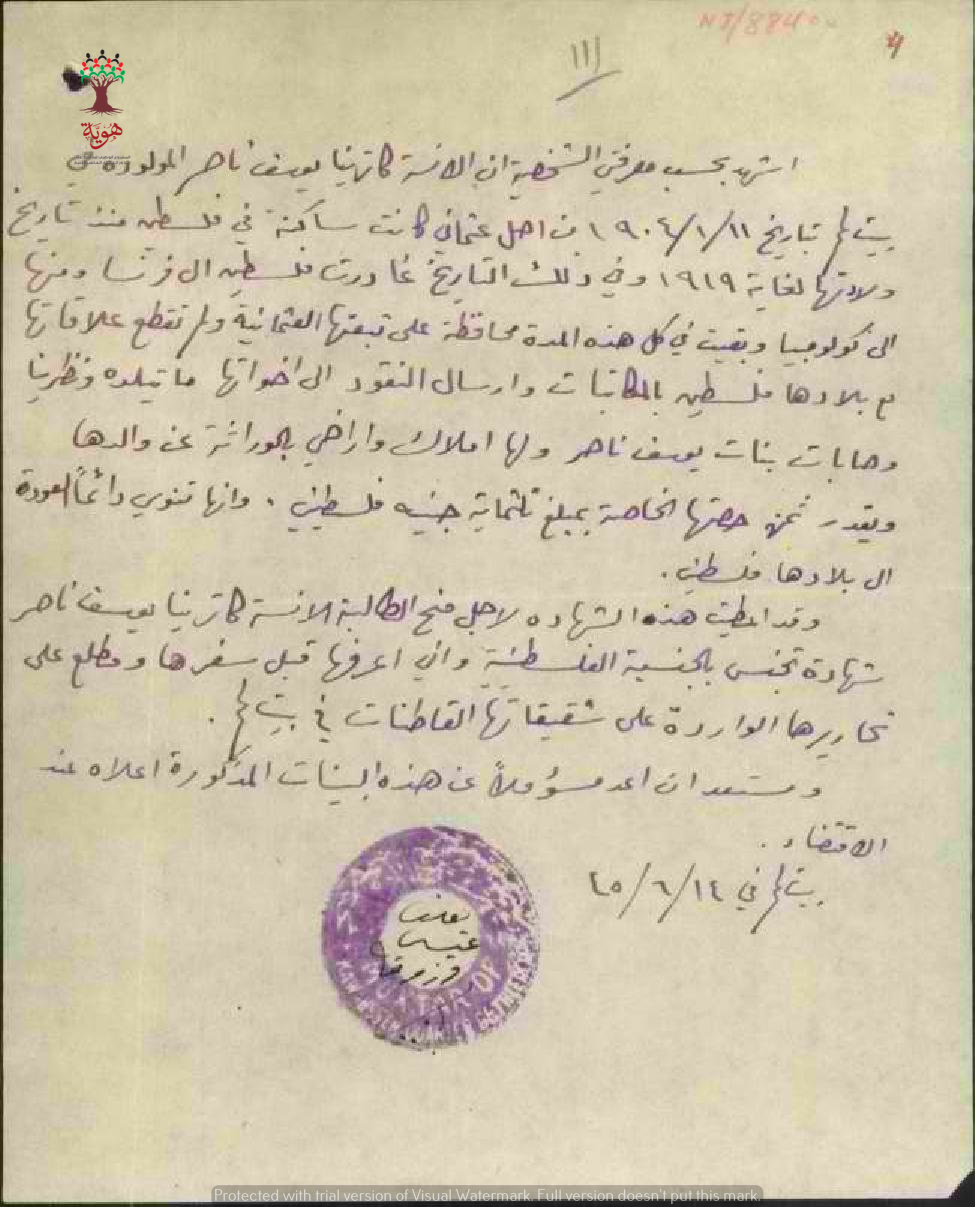 NJ/8840
4
III
هوية
اشهد بحسب معرفتي الشخصية ان الانسة كاترينا يوسف ناصر المولودة في
بيت لحم بتاريخ ١١/١/١٩٠٤ من اصل عثماني كانت ساكنة في فلسطين منذ تاريخ
ولادتها لغاية ١٩١٩ وفي ذلك التاريخ غادرت فلسطين الى فرنسا ومنها
الى كولومبيا وبقيت في كل هذه المدة محافظة على تبعتها العثمانية ولم تقطع علاقاتها
مع بلادها فلسطين بالمكاتبات وارسال النقود الى اخواتها ماتيلده ونظرينا
وصابات بنات يوسف ناصر ولها املاك واراضي بالوراثة عن والدها
ويقدر ثمن حصتها الخاصة بمبلغ ثلثماية جنيه فلسطيني . وانها تنوي دائماً العودة
الى بلادها فلسطين .
وقد اعطيت هذه الشهاده لاجل منح الطالبة الانسة كاترينا يوسف ناصر
شهادة تجنس بالجنسية الفلسطينية واني اعرفها قبل سفرها ومطلع على
تحاريرها الواردة على شقيقاتها القاطنات في بيت لحم .
ومستعد ان اعد مسؤولاً عن هذه البينات المذكورة اعلاه عند
الاقتضاء .
بيت لحم في ١٤/٦/٤٥
MUKTAR OF
Protected with trial version of Visual Watermark. Full version doesn't put this mark.